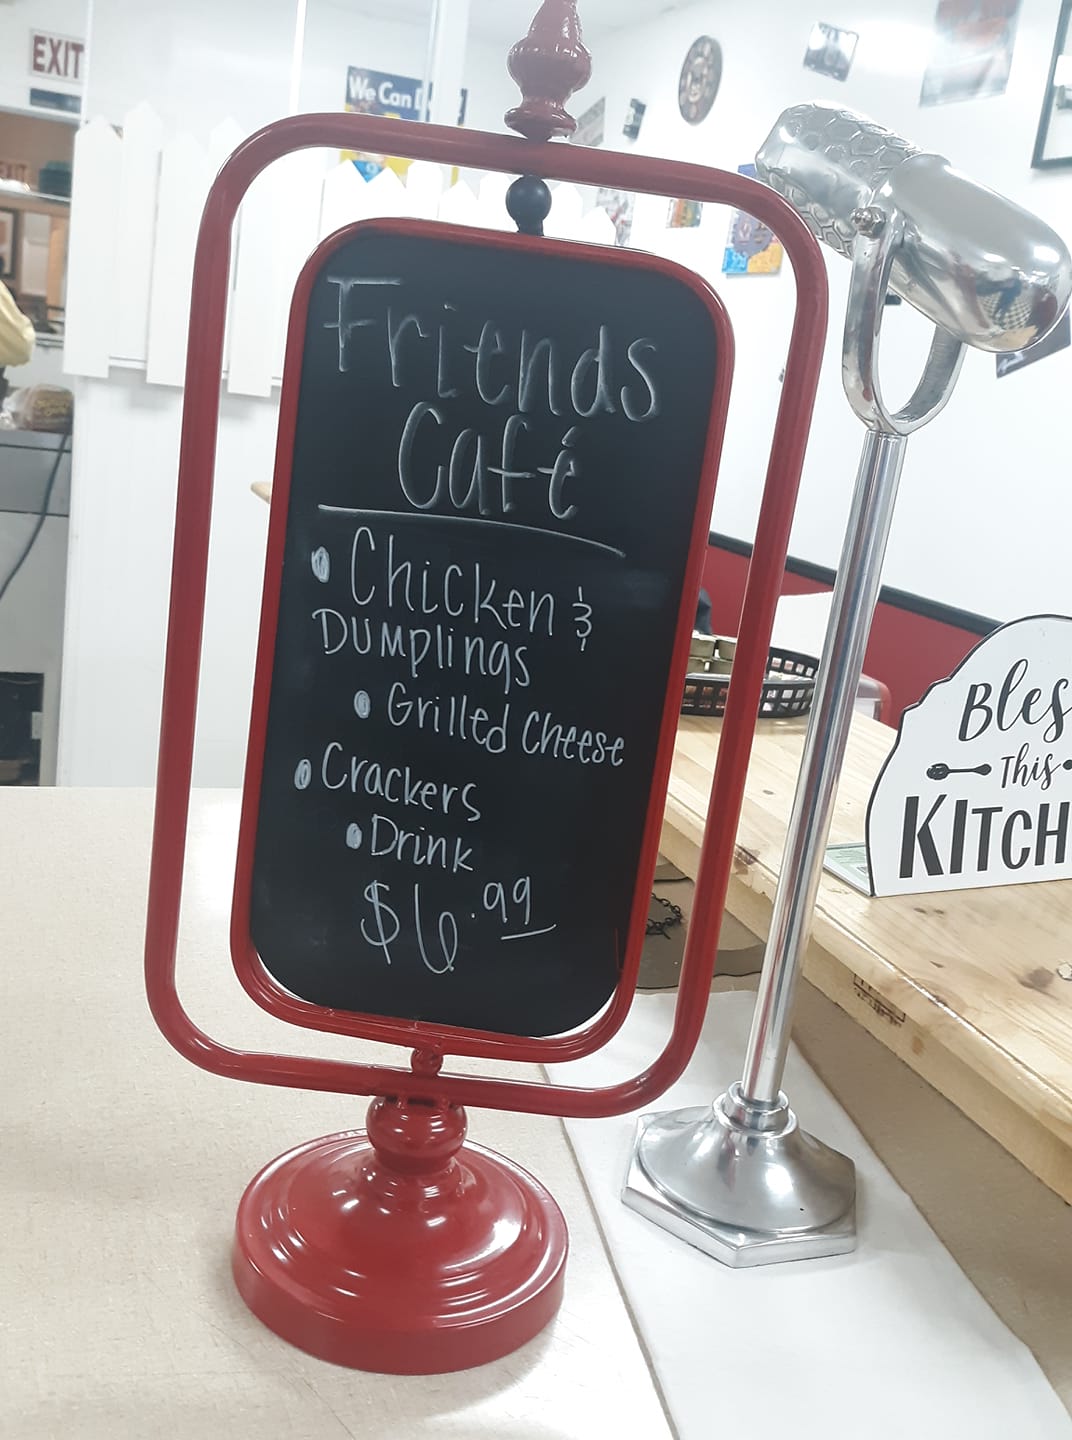 EXIT
We Can D
EXIT
Friends
Café
• Chicken &
Dumplings
• Grilled Cheese
• Crackers
• Drink
$6.99
Bles
This
KITCH